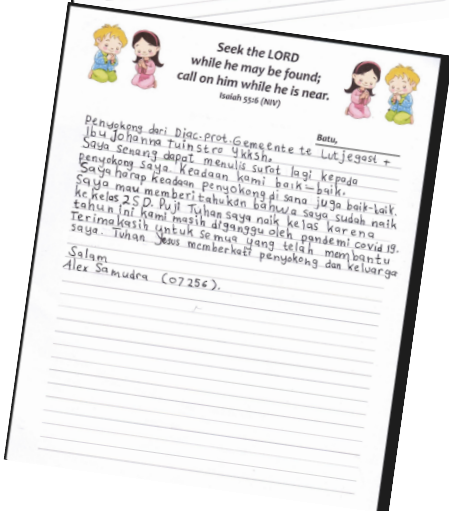 Seek the LORD
while he may be found;
call on him while he is near.
Isaiah 55:6 (NIV)
Batu,
Penyokong dari Diac.prot.Gemeente te Lutjegast +
Ibu Johanna Tuinstro Ykksh,
Saya senang dapat menulis surat lagi kepada
penyokong saya. Keadaan kami baik-baik.
Saya harap keadaan penyokong di sana juga baik-baik.
Saya mau memberitahukan bahwa saya sudah naik
ke kelas 2 SD. Puji Tuhan saya naik kelas karena
tahun ini kami masih diganggu oleh pandemi covid 19.
Terimakasih untuk semua yang telah membantu
saya. Tuhan Yesus memberkati penyokong dan keluarga
Salam
Alex Samudra (07256).